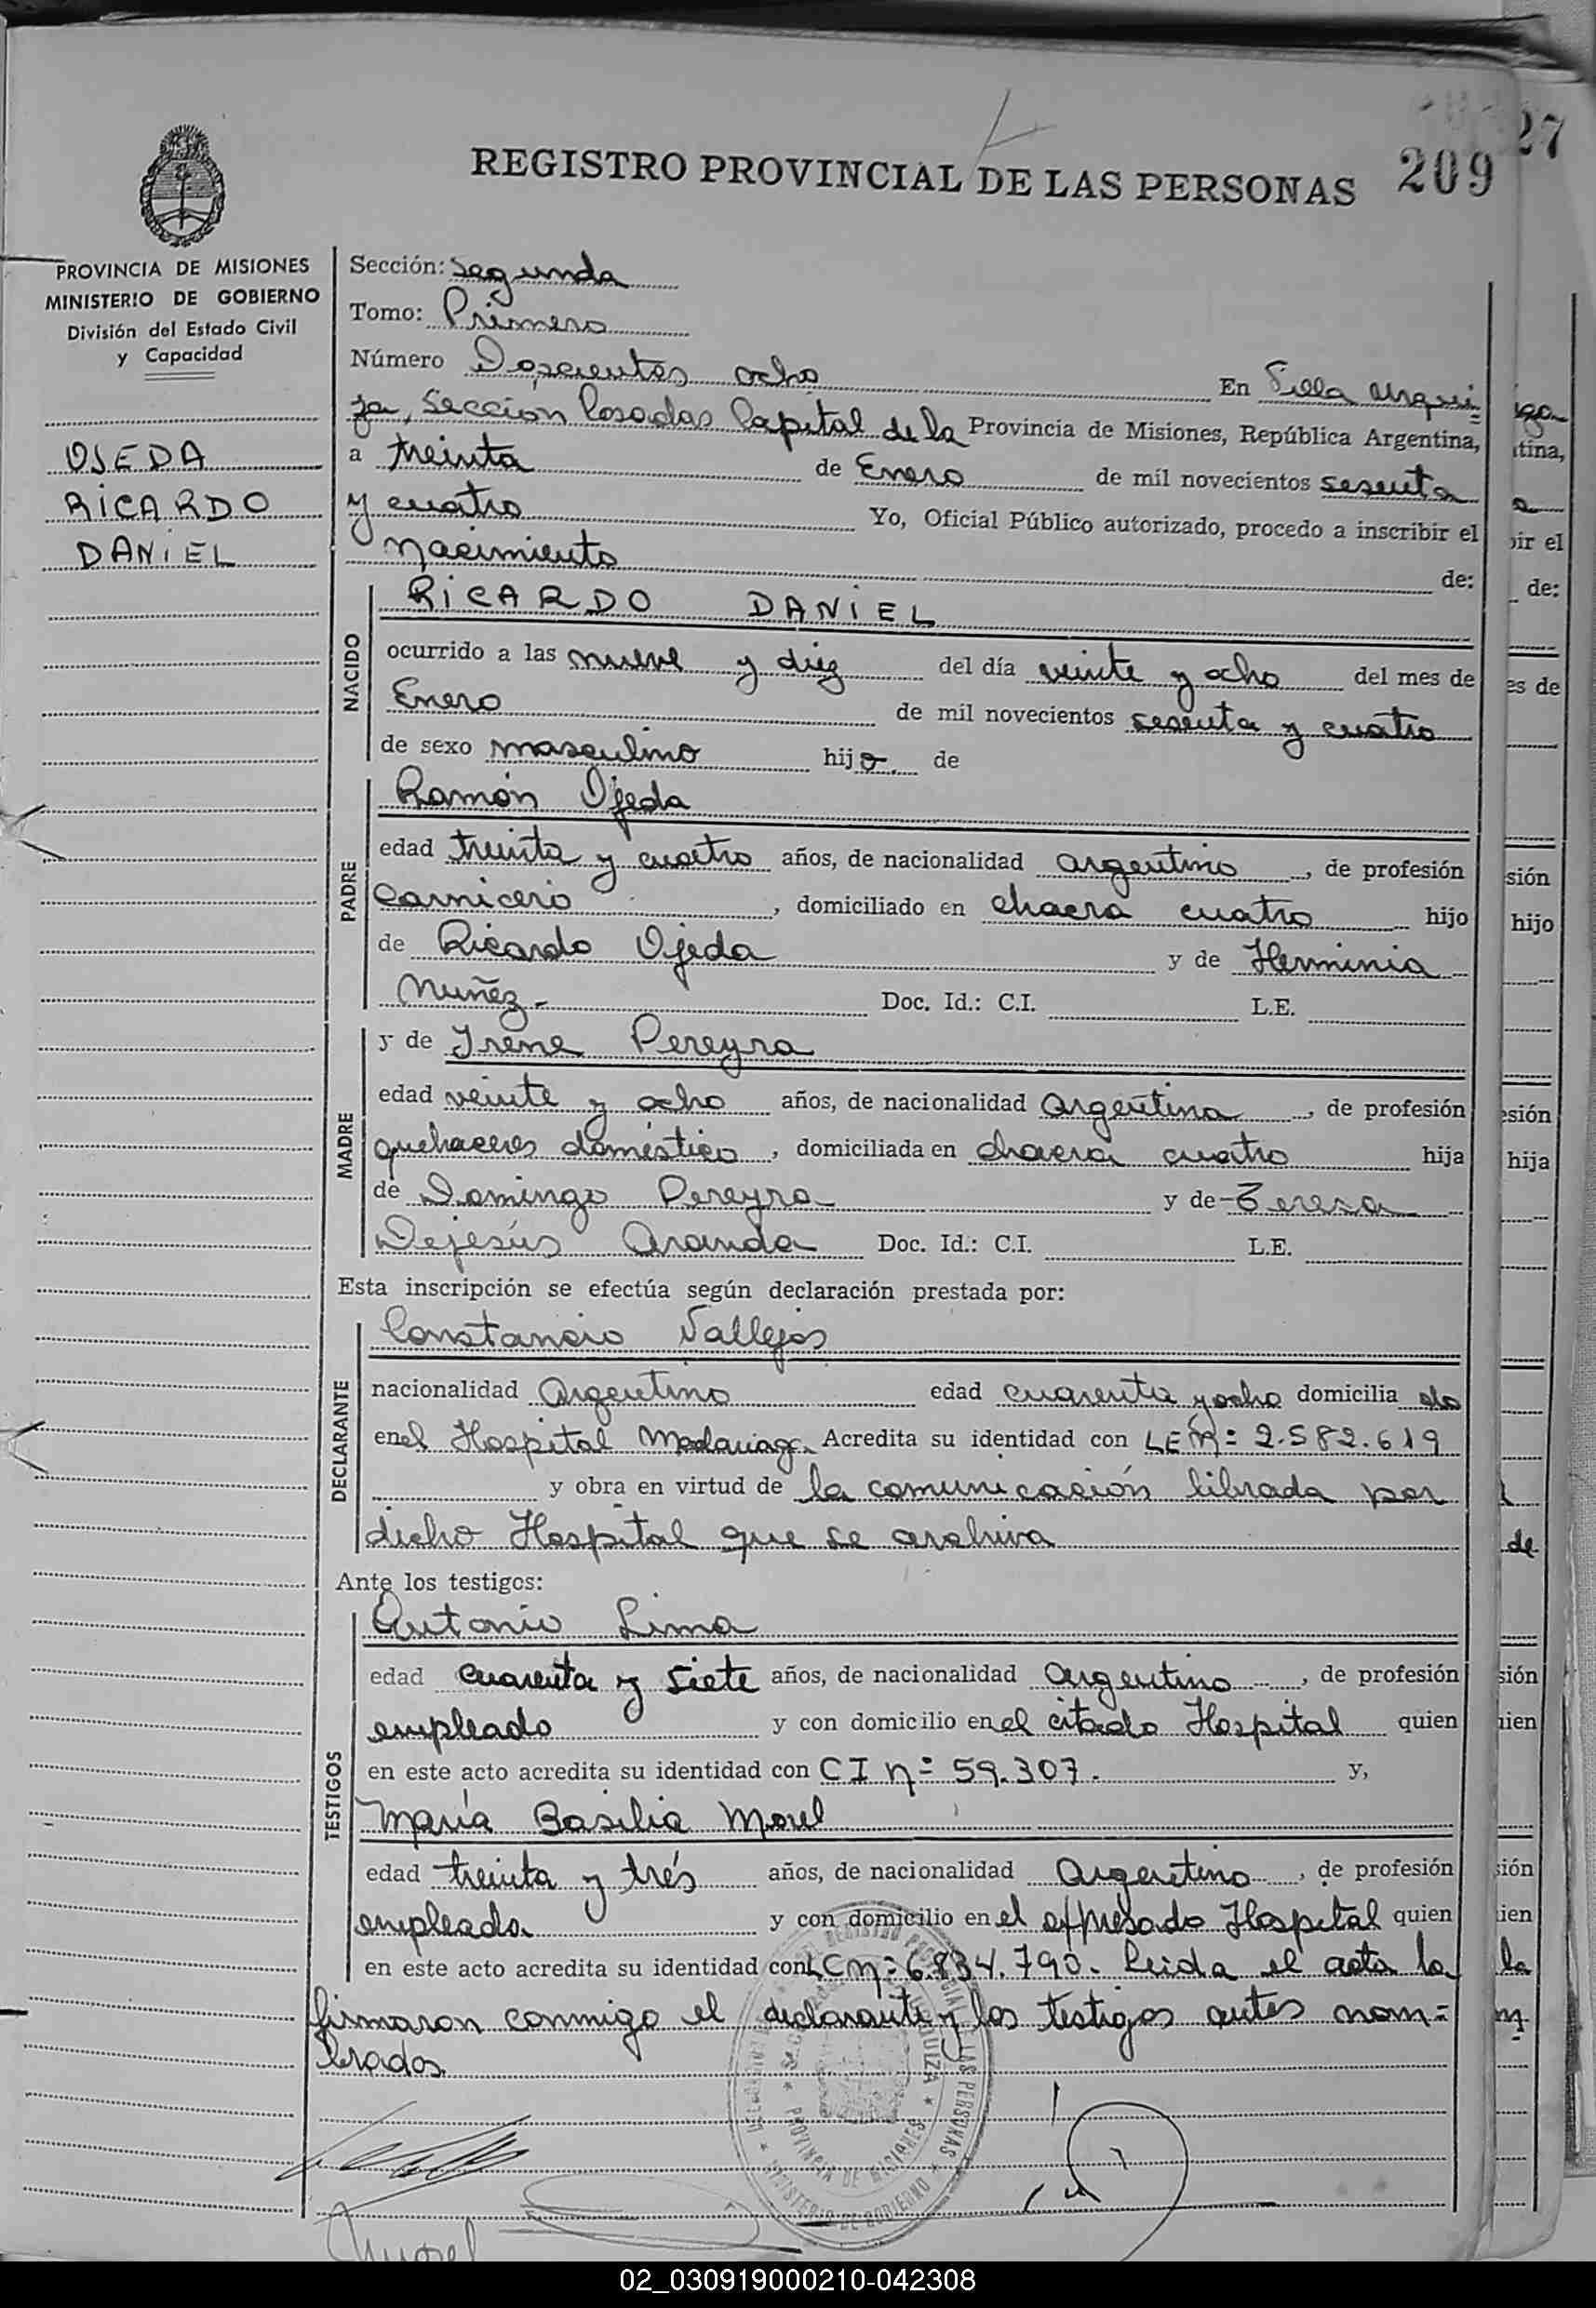 27
REGISTRO PROVINCIAL DE LAS PERSONAS 209
PROVINCIA DE MISIONES
MINISTERIO DE GOBIERNO
División del Estado Civil
y Capacidad
OJEDA
RICARDO
DANIEL
Sección: Segunda
Tomo: Primero
Número Doscientos ocho En Villa Urqui=
za, Sección Posadas Capital de la Provincia de Misiones, República Argentina,
a treinta de Enero de mil novecientos sesenta
y cuatro Yo, Oficial Público autorizado, procedo a inscribir el
nacimiento de:
NACIDO
RICARDO DANIEL
ocurrido a las nueve y diez del día veinte y ocho del mes de
Enero de mil novecientos sesenta y cuatro
de sexo masculino hijo de
PADRE
Ramón Ojeda
edad treinta y cuatro años, de nacionalidad argentino, de profesión
Carnicero, domiciliado en chacra cuatro hijo
de Ricardo Ojeda y de Herminia
Nuñez.- Doc. Id.: C.I. L.E.
MADRE
y de Irene Pereyra
edad veinte y ocho años, de nacionalidad Argentina, de profesión
quehaceres doméstico, domiciliada en chacra cuatro hija
de Domingo Pereyra y de Teresa
Dejesús Aranda Doc. Id.: C.I. L.E.
Esta inscripción se efectúa según declaración prestada por:
DECLARANTE
Constancio Vallejos
nacionalidad Argentino edad cuarenta y ocho domicilia do
en el Hospital Madariaga Acredita su identidad con LE n= 2.582.619
y obra en virtud de la comunicación librada por
dicho Hospital que se archiva
Ante los testigos:
TESTIGOS
Antonio Lima
edad cuarenta y siete años, de nacionalidad argentino, de profesión
empleado y con domicilio en el citado Hospital quien
en este acto acredita su identidad con CI n= 59.307. y,
María Basilia Morel
edad treinta y trés años, de nacionalidad Argentina, de profesión
empleada y con domicilio en el expresado Hospital quien
en este acto acredita su identidad con LC n= 6.834.790. Leida el acta la
firmaron conmigo el declarante y los testigos antes nom=
brados.
PROVINCIA DE MISIONES
MINISTERIO DE GOBIERNO
Morel
02_030919000210-042308